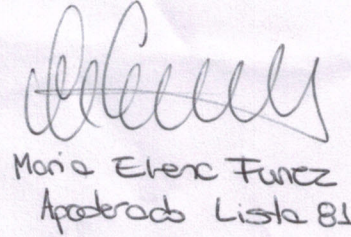 Maria Elena Funez
Apoderado Lista 81